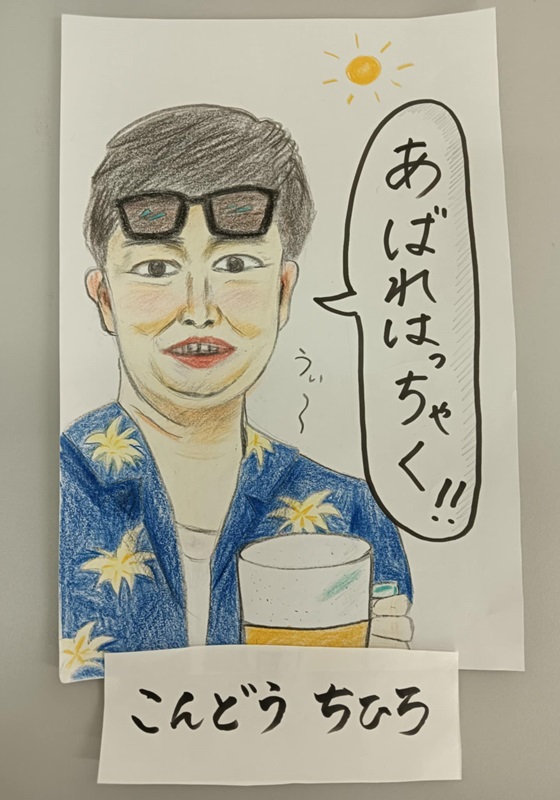 あばれはっちゃく!!
うぃ〜
こんどう ちひろ